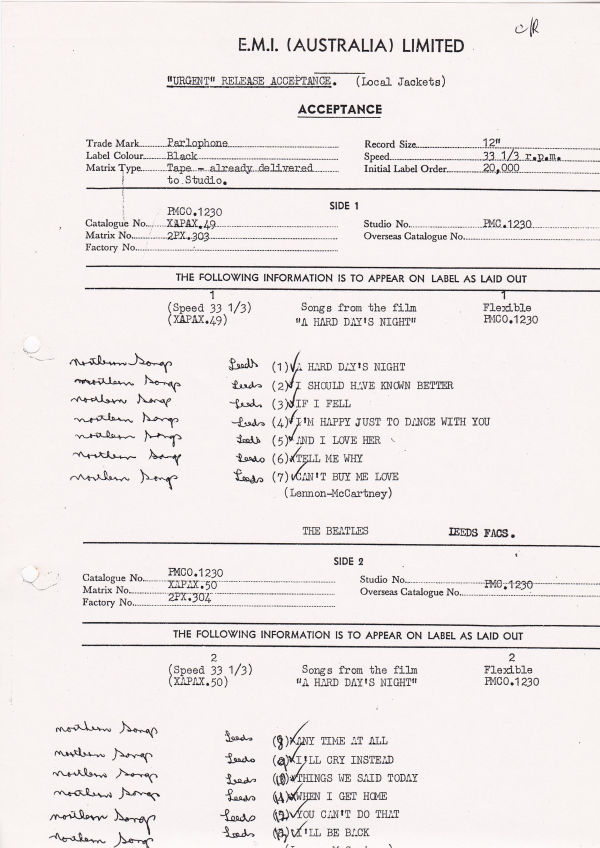 c/R
E.M.I. (AUSTRALIA) LIMITED
"URGENT" RELEASE ACCEPTANCE. (Local Jackets)
ACCEPTANCE
Trade Mark Parlophone Record Size 12"
Label Colour Black Speed 33 1/3 r.p.m.
Matrix Type Tape - already delivered Initial Label Order 20,000
to Studio.
SIDE 1
PMCO.1230
Catalogue No. XAPAX.49 Studio No. PMC.1230
Matrix No. 2PX.303 Overseas Catalogue No.
Factory No.
THE FOLLOWING INFORMATION IS TO APPEAR ON LABEL AS LAID OUT
1 1
(Speed 33 1/3) Songs from the film Flexible
(XAPAX.49) "A HARD DAY'S NIGHT" PMCO.1230
northern Songs Leeds (1) A HARD DAY'S NIGHT
northern Songs Leeds (2) I SHOULD HAVE KNOWN BETTER
northern Songs Leeds (3) IF I FELL
northern Songs Leeds (4) I'M HAPPY JUST TO DANCE WITH YOU
northern Songs Leeds (5) AND I LOVE HER
northern Songs Leeds (6) TELL ME WHY
northern Songs Leeds (7) CAN'T BUY ME LOVE
(Lennon-McCartney)
THE BEATLES LEEDS FACS.
SIDE 2
Catalogue No. PMCO.1230 Studio No. PMC.1230
Matrix No. XAPAX.50 Overseas Catalogue No.
Factory No. 2PX.304
THE FOLLOWING INFORMATION IS TO APPEAR ON LABEL AS LAID OUT
2 2
(Speed 33 1/3) Songs from the film Flexible
(XAPAX.50) "A HARD DAY'S NIGHT" PMCO.1230
northern Songs Leeds (8) ANY TIME AT ALL
northern Songs Leeds (9) I'LL CRY INSTEAD
northern Songs Leeds (10) THINGS WE SAID TODAY
northern Songs Leeds (11) WHEN I GET HOME
northern Songs Leeds (12) YOU CAN'T DO THAT
northern Songs Leeds (13) I'LL BE BACK